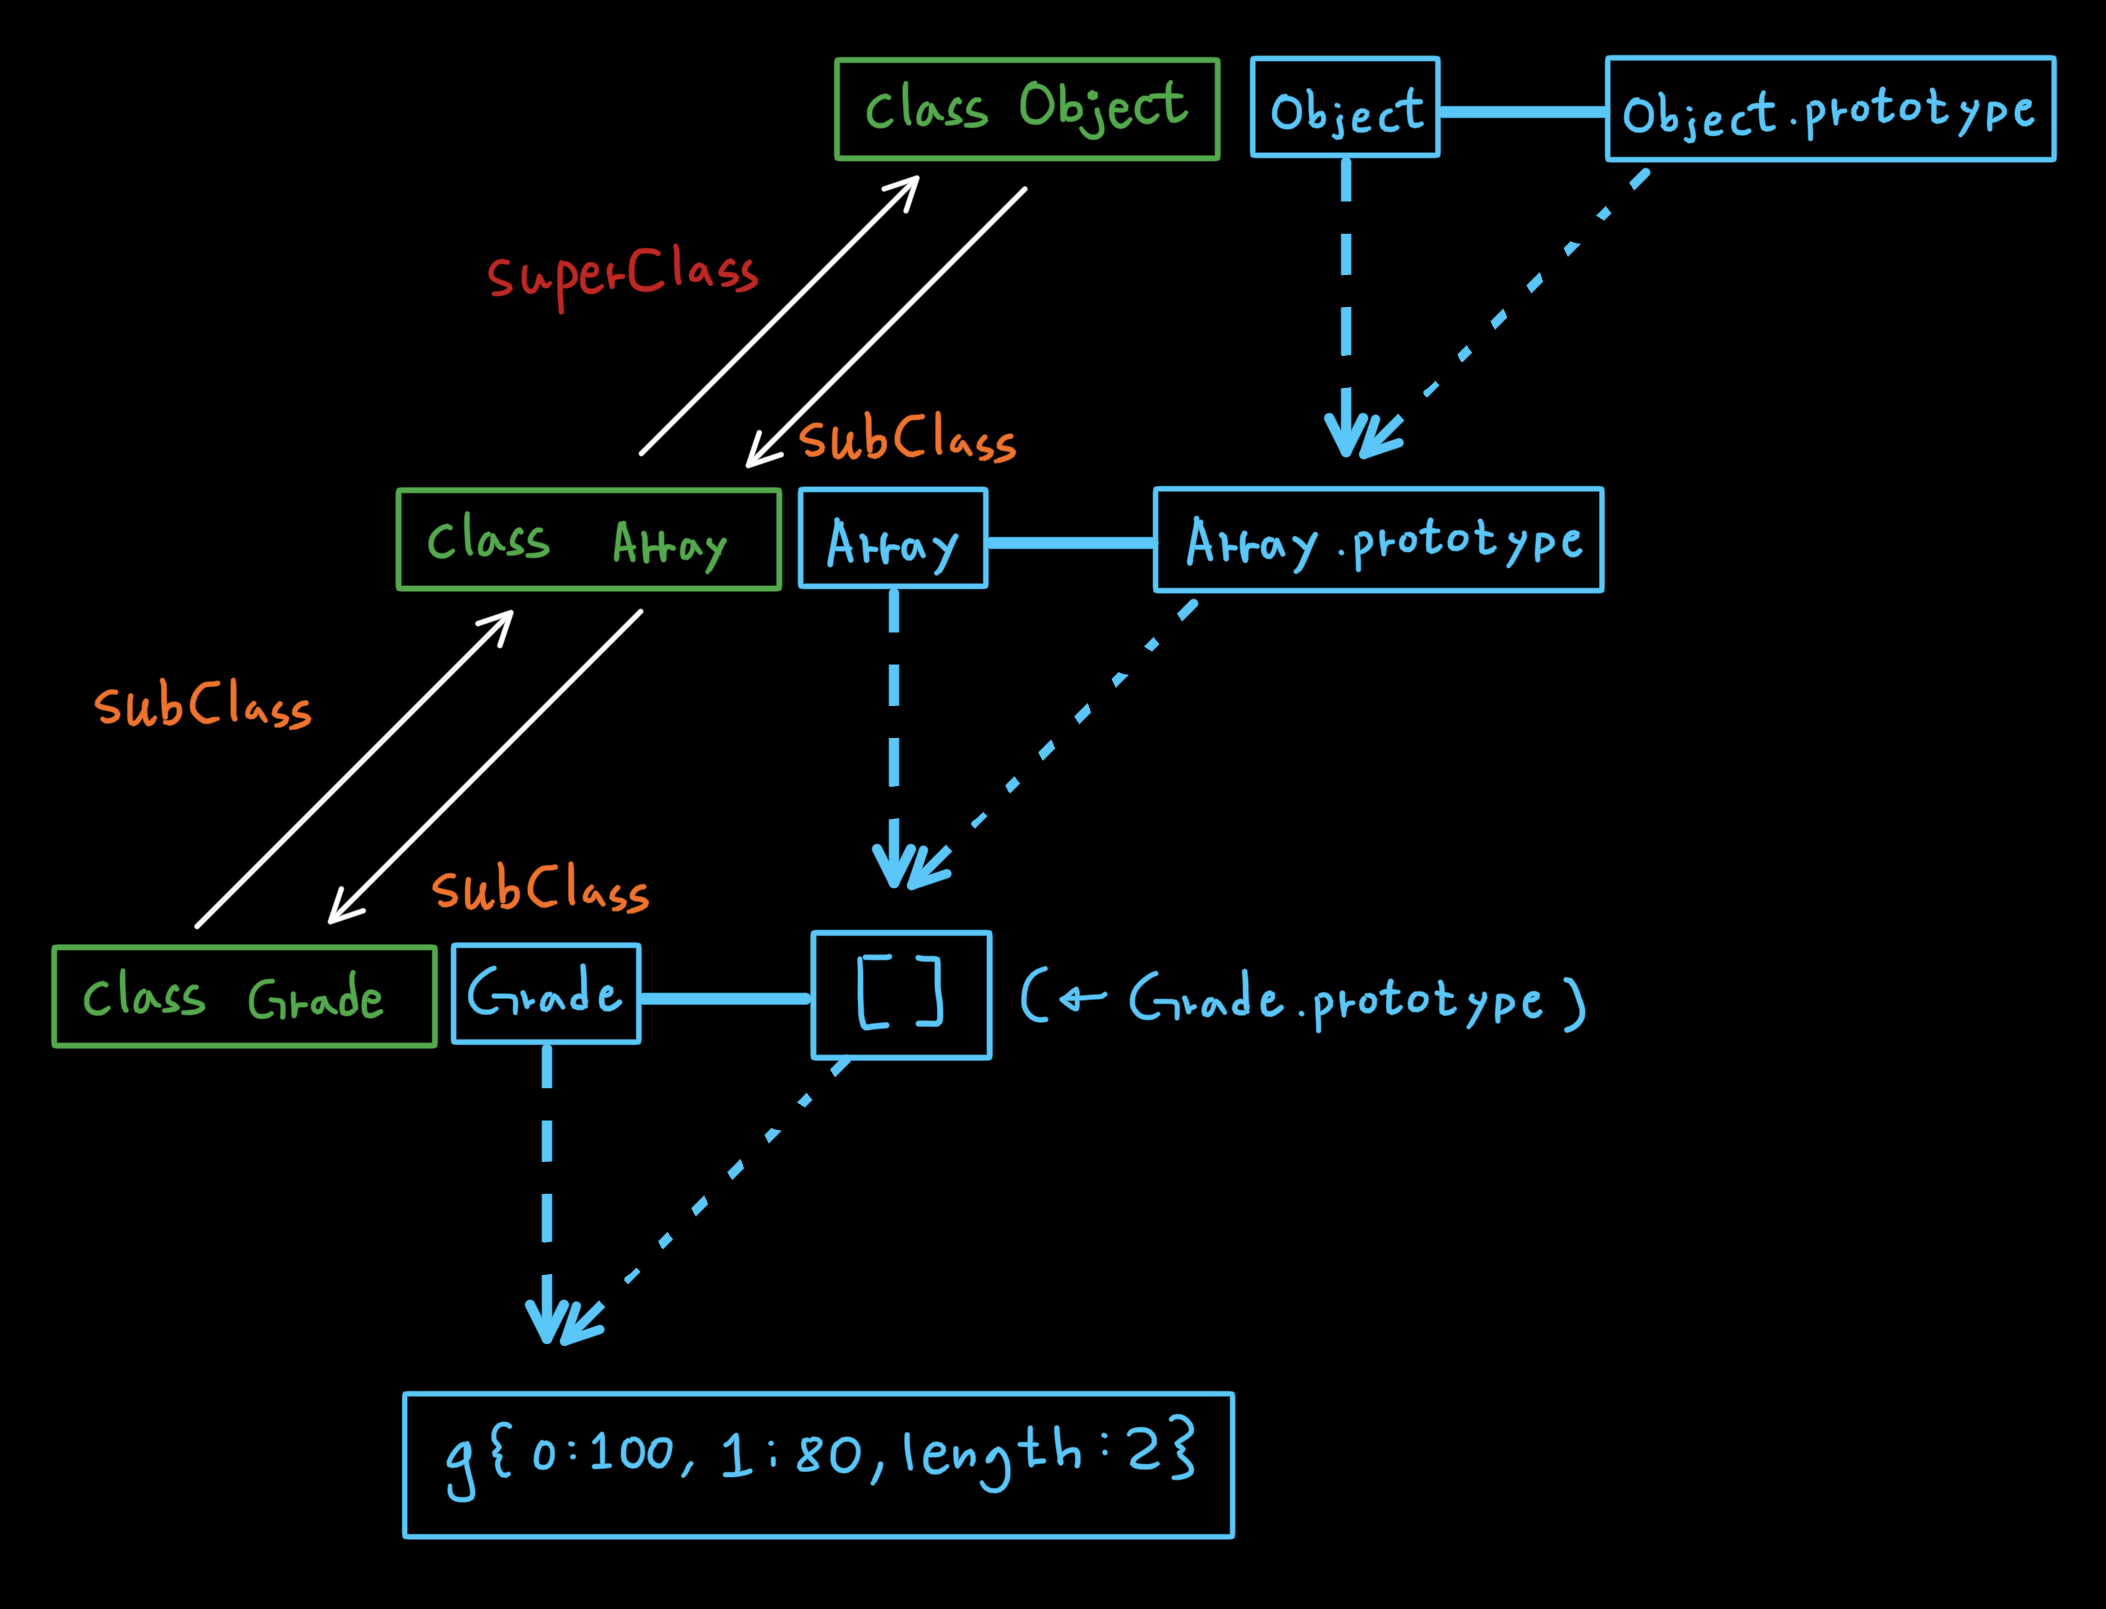 class Object
Object
Object.prototype
superClass
subClass
class Array
Array
Array.prototype
subClass
subClass
class Grade
Grade
[ ]
(← Grade.prototype)
g{0:100, 1:80, length:2}